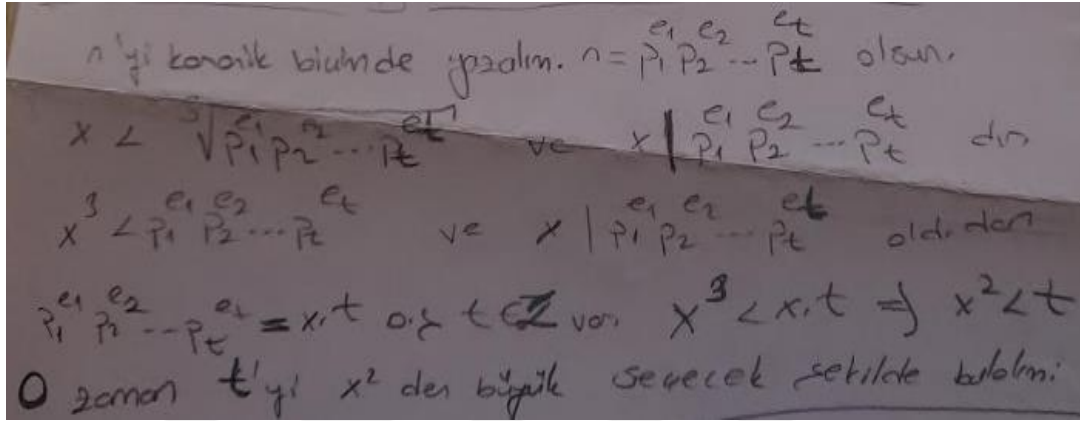 n'yi kanonik biçimde yazalım. n = p₁^e₁ p₂^e₂ ... pₜ^eₜ olsun.
x < ³√(p₁^e₁ p₂^e₂ ... pₜ^eₜ) ve x | p₁^e₁ p₂^e₂ ... pₜ^eₜ dır
x³ < p₁^e₁ p₂^e₂ ... pₜ^eₜ ve x | p₁^e₁ p₂^e₂ ... pₜ^eₜ olduğundan
p₁^e₁ p₂^e₂ ... pₜ^eₜ = x.t o.ş t ∈ Z var. x³ < x.t ⇒ x² < t
O zaman t'yi x² den büyük seçecek şekilde bulalım: